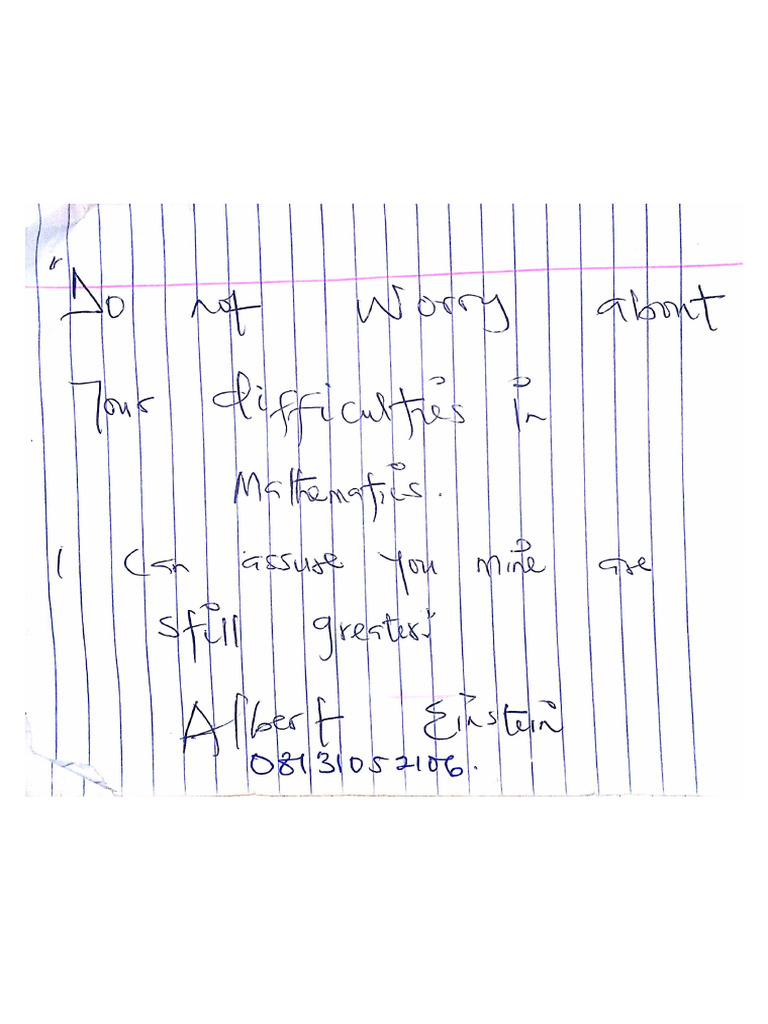 "Do not worry about
your difficulties in
Mathematics.
I can assure you mine are
still greater."
Albert Einstein
08131052106.